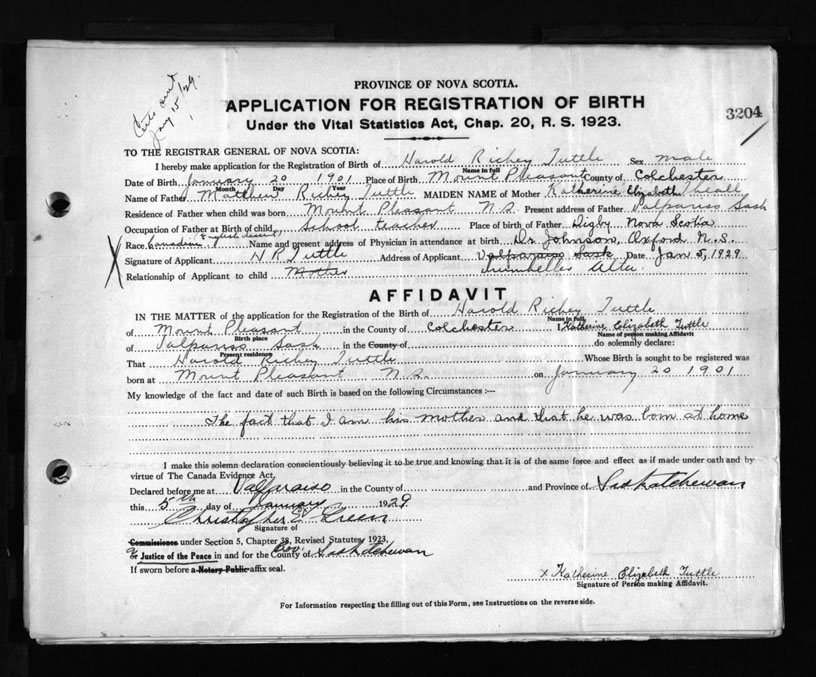 PROVINCE OF NOVA SCOTIA.
APPLICATION FOR REGISTRATION OF BIRTH
Under the Vital Statistics Act, Chap. 20, R. S. 1923.
3204
Jany 15/29.
TO THE REGISTRAR GENERAL OF NOVA SCOTIA:
I hereby make application for the Registration of Birth of Harold Richey Tuttle Sex male
Name in full
Date of Birth January 20 1901 Place of Birth Mount Pleasant County of Colchester
Month Day Year
Name of Father Matthew Richey Tuttle MAIDEN NAME of Mother Katherine Elizabeth Theall
Residence of Father when child was born Mount Pleasant N S. Present address of Father Valpariso Sask
Occupation of Father at Birth of child, School teacher Place of birth of Father Digby Nova Scotia
English descent
Race Canadian Name and present address of Physician in attendance at birth Dr Johnson, Oxford N.S.
Signature of Applicant H R Tuttle Address of Applicant Valparaiso Sask Date Jan 5, 1929
Relationship of Applicant to child Mother Drumheller Alta.
AFFIDAVIT
IN THE MATTER of the application for the Registration of the Birth of Harold Richey Tuttle
Name in full,
of Mount Pleasant in the County of Colchester I Katherine Elizabeth Tuttle
Birth place Name of person making Affidavit
of Valpariso Sask in the County of do solemnly declare:
Present residence
That Harold Richey Tuttle Whose Birth is sought to be registered was
born at Mount Pleasant N S. on January 20 1901
My knowledge of the fact and date of such Birth is based on the following Circumstances :—
The fact that I am his mother and that he was born at home
I make this solemn declaration conscientiously believing it to be true and knowing that it is of the same force and effect as if made under oath and by
virtue of The Canada Evidence Act.
Declared before me at Valparaiso in the County of and Province of Saskatchewan
this 5th day of January 1929
Christopher E Green
Signature of
Commissioner under Section 5, Chapter 38, Revised Statutes, 1923,
Or Justice of the Peace in and for the County of Prov. Saskatchewan
If sworn before a Notary Public affix seal.
x Katherine Elizabeth Tuttle
Signature of Person making Affidavit.
For Information respecting the filling out of this Form, see Instructions on the reverse side.